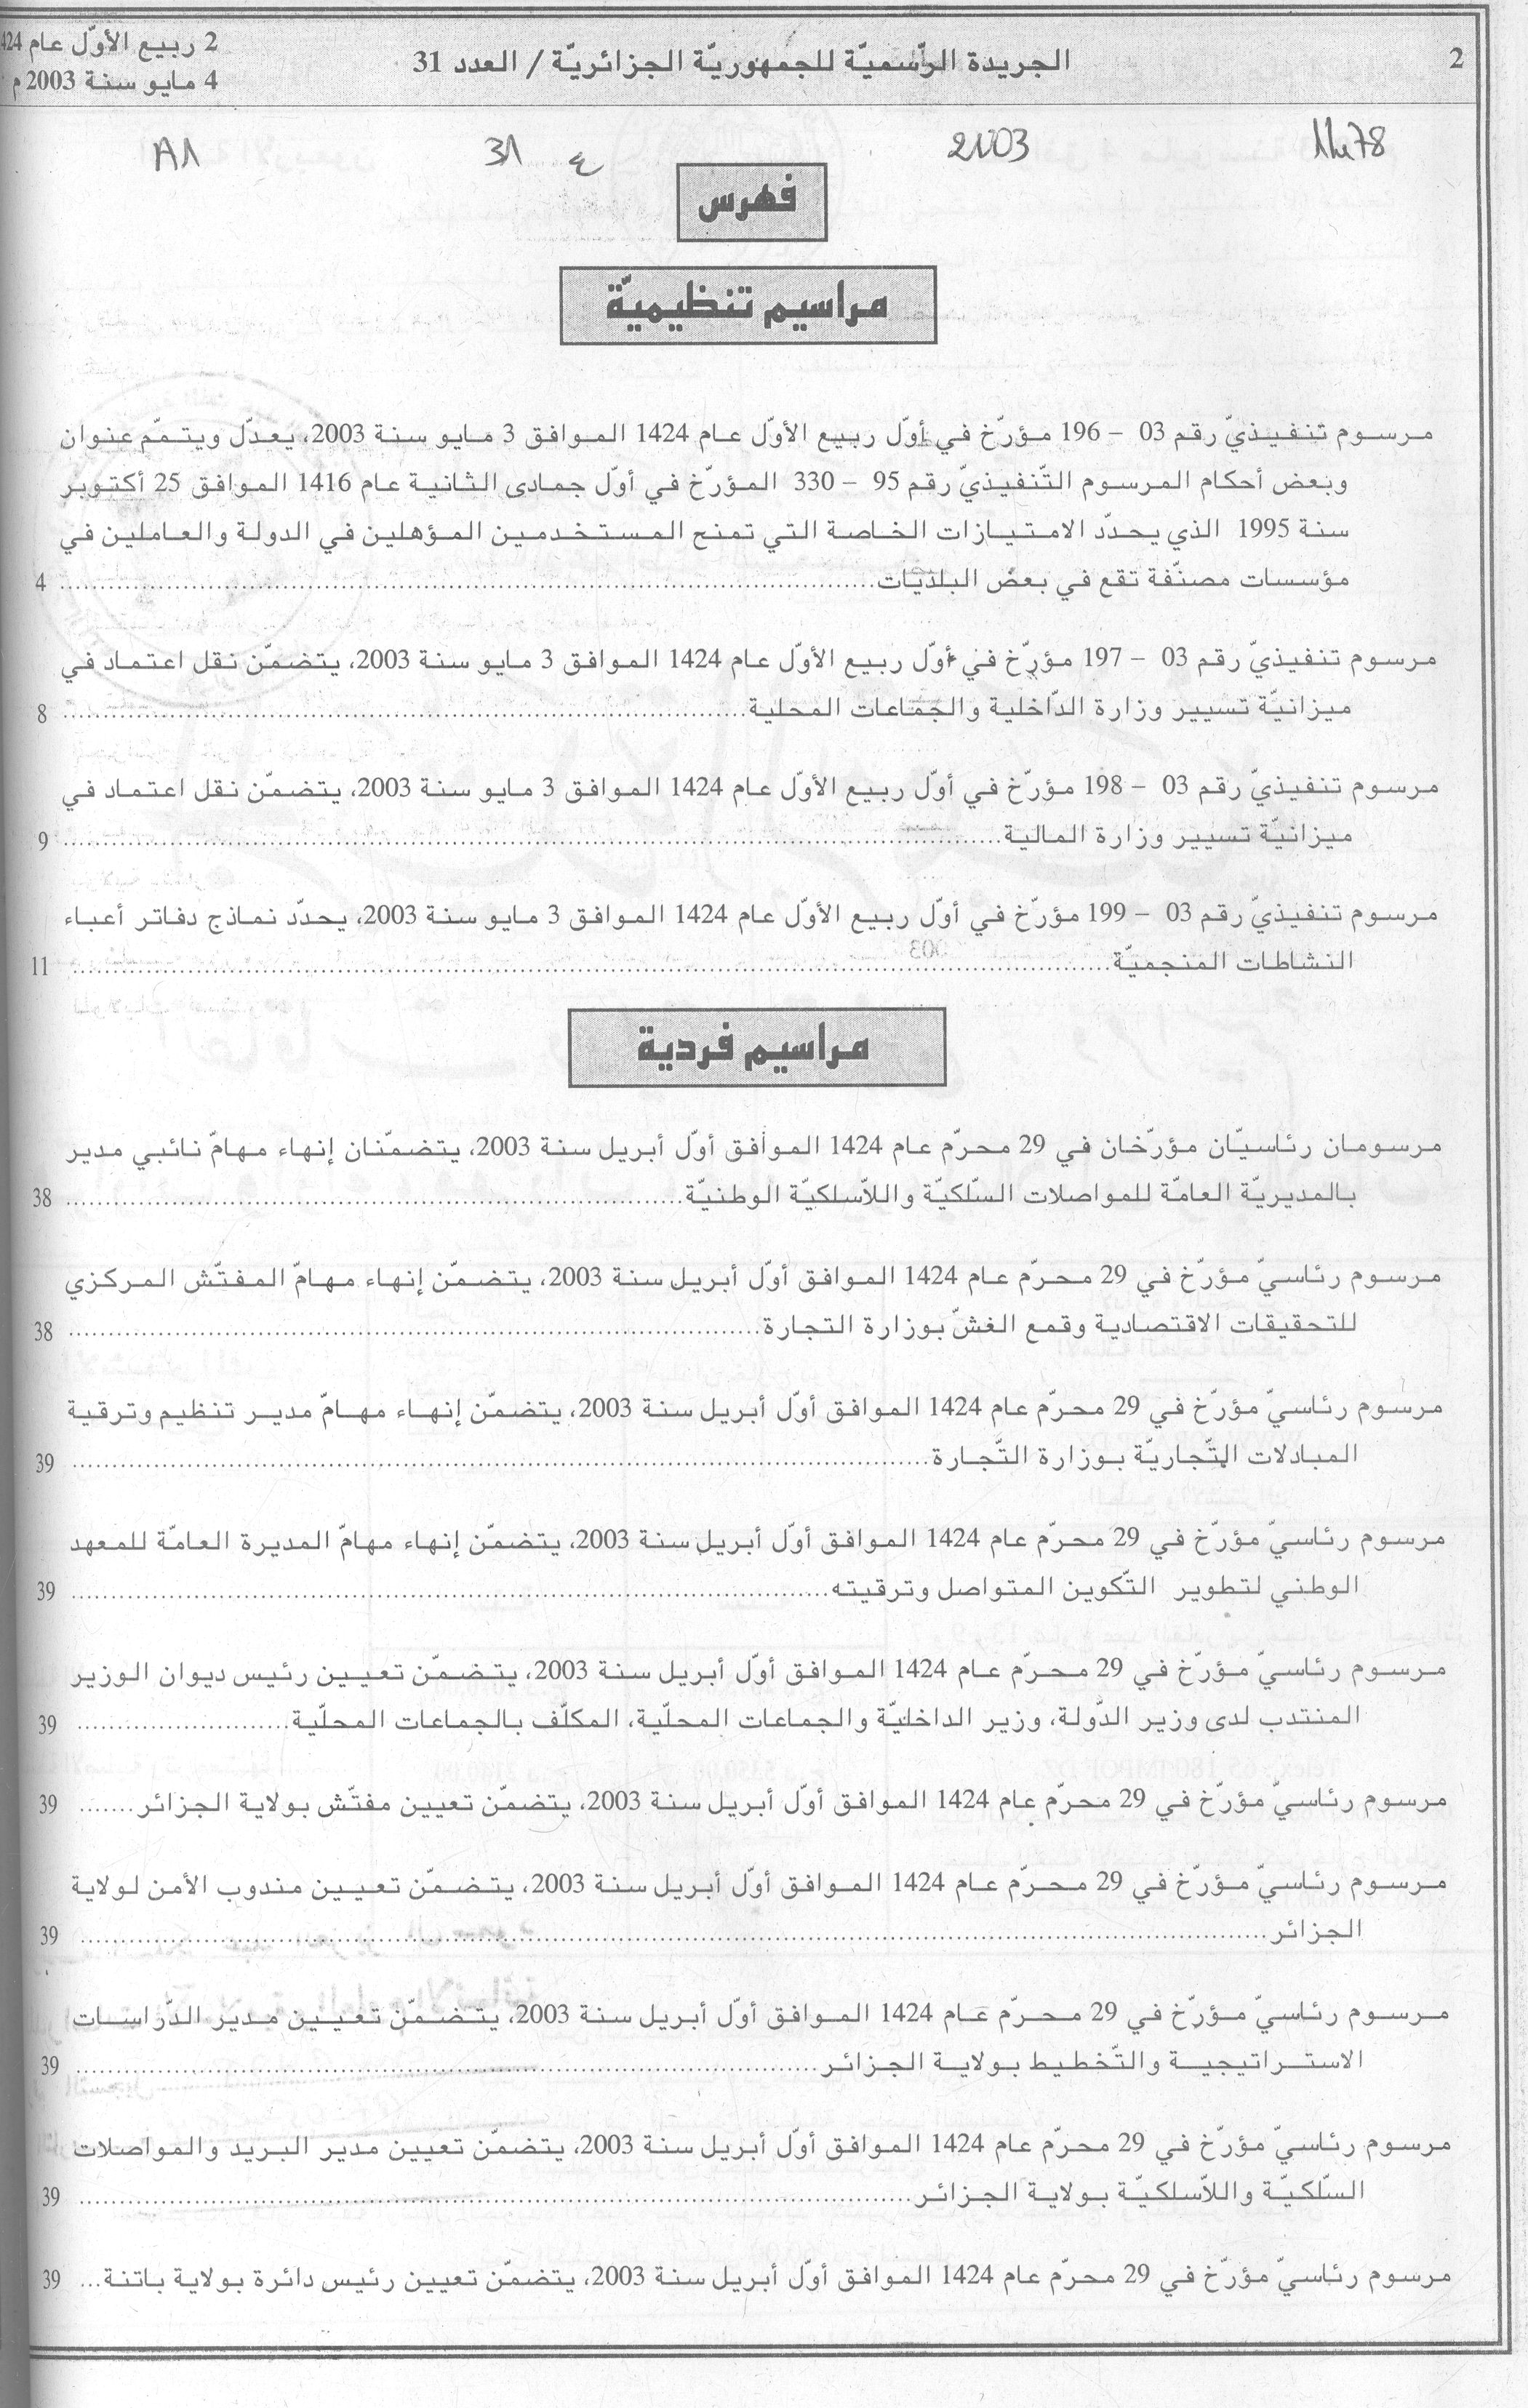 2
الجريدة الرّسميّة للجمهوريّة الجزائريّة / العدد 31
2 ربيع الأوّل عام 1424
4 مايو سنة 2003 م
2003
31
فهرس
مراسيم تنظيميّة
مرسوم تنفيذيّ رقم 03 – 196 مؤرّخ في أوّل ربيع الأوّل عام 1424 الموافق 3 مايو سنة 2003، يعدّل ويتمّم عنوان
وبعض أحكام المرسوم التّنفيذيّ رقم 95 – 330 المؤرّخ في أوّل جمادى الثانية عام 1416 الموافق 25 أكتوبر
سنة 1995 الذي يحدّد الامتيازات الخاصة التي تمنح المستخدمين المؤهلين في الدولة والعاملين في
مؤسسات مصنّفة تقع في بعض البلديات........ 4
مرسوم تنفيذيّ رقم 03 – 197 مؤرّخ في أوّل ربيع الأوّل عام 1424 الموافق 3 مايو سنة 2003، يتضمّن نقل اعتماد في
ميزانيّة تسيير وزارة الدّاخلية والجماعات المحلية........ 8
مرسوم تنفيذيّ رقم 03 – 198 مؤرّخ في أوّل ربيع الأوّل عام 1424 الموافق 3 مايو سنة 2003، يتضمّن نقل اعتماد في
ميزانيّة تسيير وزارة المالية........ 9
مرسوم تنفيذيّ رقم 03 – 199 مؤرّخ في أوّل ربيع الأوّل عام 1424 الموافق 3 مايو سنة 2003، يحدّد نماذج دفاتر أعباء
النشاطات المنجميّة........ 11
مراسيم فردية
مرسومان رئاسيّان مؤرّخان في 29 محرّم عام 1424 الموافق أوّل أبريل سنة 2003، يتضمّنان إنهاء مهامّ نائبي مدير
بالمديريّة العامّة للمواصلات السّلكيّة واللاّسلكيّة الوطنيّة........ 38
مرسوم رئاسيّ مؤرّخ في 29 محرّم عام 1424 الموافق أوّل أبريل سنة 2003، يتضمّن إنهاء مهامّ المفتّش المركزي
للتحقيقات الاقتصادية وقمع الغشّ بوزارة التجارة........ 38
مرسوم رئاسيّ مؤرّخ في 29 محرّم عام 1424 الموافق أوّل أبريل سنة 2003، يتضمّن إنهاء مهامّ مدير تنظيم وترقية
المبادلات التّجاريّة بوزارة التّجارة........ 39
مرسوم رئاسيّ مؤرّخ في 29 محرّم عام 1424 الموافق أوّل أبريل سنة 2003، يتضمّن إنهاء مهامّ المديرة العامّة للمعهد
الوطني لتطوير التّكوين المتواصل وترقيته........ 39
مرسوم رئاسيّ مؤرّخ في 29 محرّم عام 1424 الموافق أوّل أبريل سنة 2003، يتضمّن تعيين رئيس ديوان الوزير
المنتدب لدى وزير الدّولة، وزير الداخليّة والجماعات المحلّية، المكلّف بالجماعات المحلّية........ 39
مرسوم رئاسيّ مؤرّخ في 29 محرّم عام 1424 الموافق أوّل أبريل سنة 2003، يتضمّن تعيين مفتّش بولاية الجزائر....... 39
مرسوم رئاسيّ مؤرّخ في 29 محرّم عام 1424 الموافق أوّل أبريل سنة 2003، يتضمّن تعيين مندوب الأمن لولاية
الجزائر........ 39
مرسوم رئاسيّ مؤرّخ في 29 محرّم عام 1424 الموافق أوّل أبريل سنة 2003، يتضمّن تعيين مدير الدّراسات
الاستراتيجية والتّخطيط بولاية الجزائر........ 39
مرسوم رئاسيّ مؤرّخ في 29 محرّم عام 1424 الموافق أوّل أبريل سنة 2003، يتضمّن تعيين مدير البريد والمواصلات
السّلكيّة واللاّسلكيّة بولاية الجزائر........ 39
مرسوم رئاسيّ مؤرّخ في 29 محرّم عام 1424 الموافق أوّل أبريل سنة 2003، يتضمّن تعيين رئيس دائرة بولاية باتنة... 39